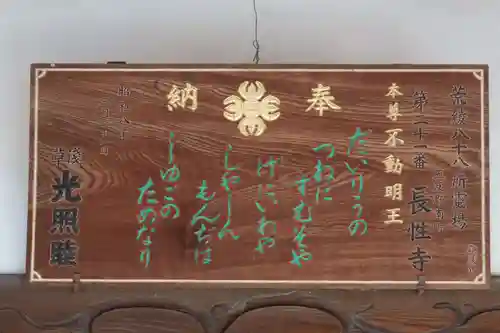 荒綾八十八所霊場
第二十一番
長性寺
本尊不動明王
奉納
たいりうの
つねに
すむそや
げにいわや
しやしん
もんぢは
しゆごの
ためなり
浅草
光照睦